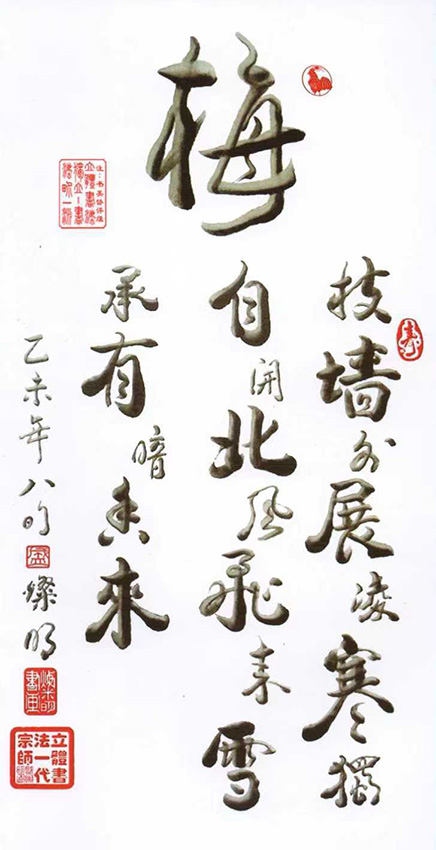 梅
技墙外展凌寒獨
自開北风飛来雪
承有暗香來
乙未年八旬盛燦明
寿
立體書
法一代
宗師